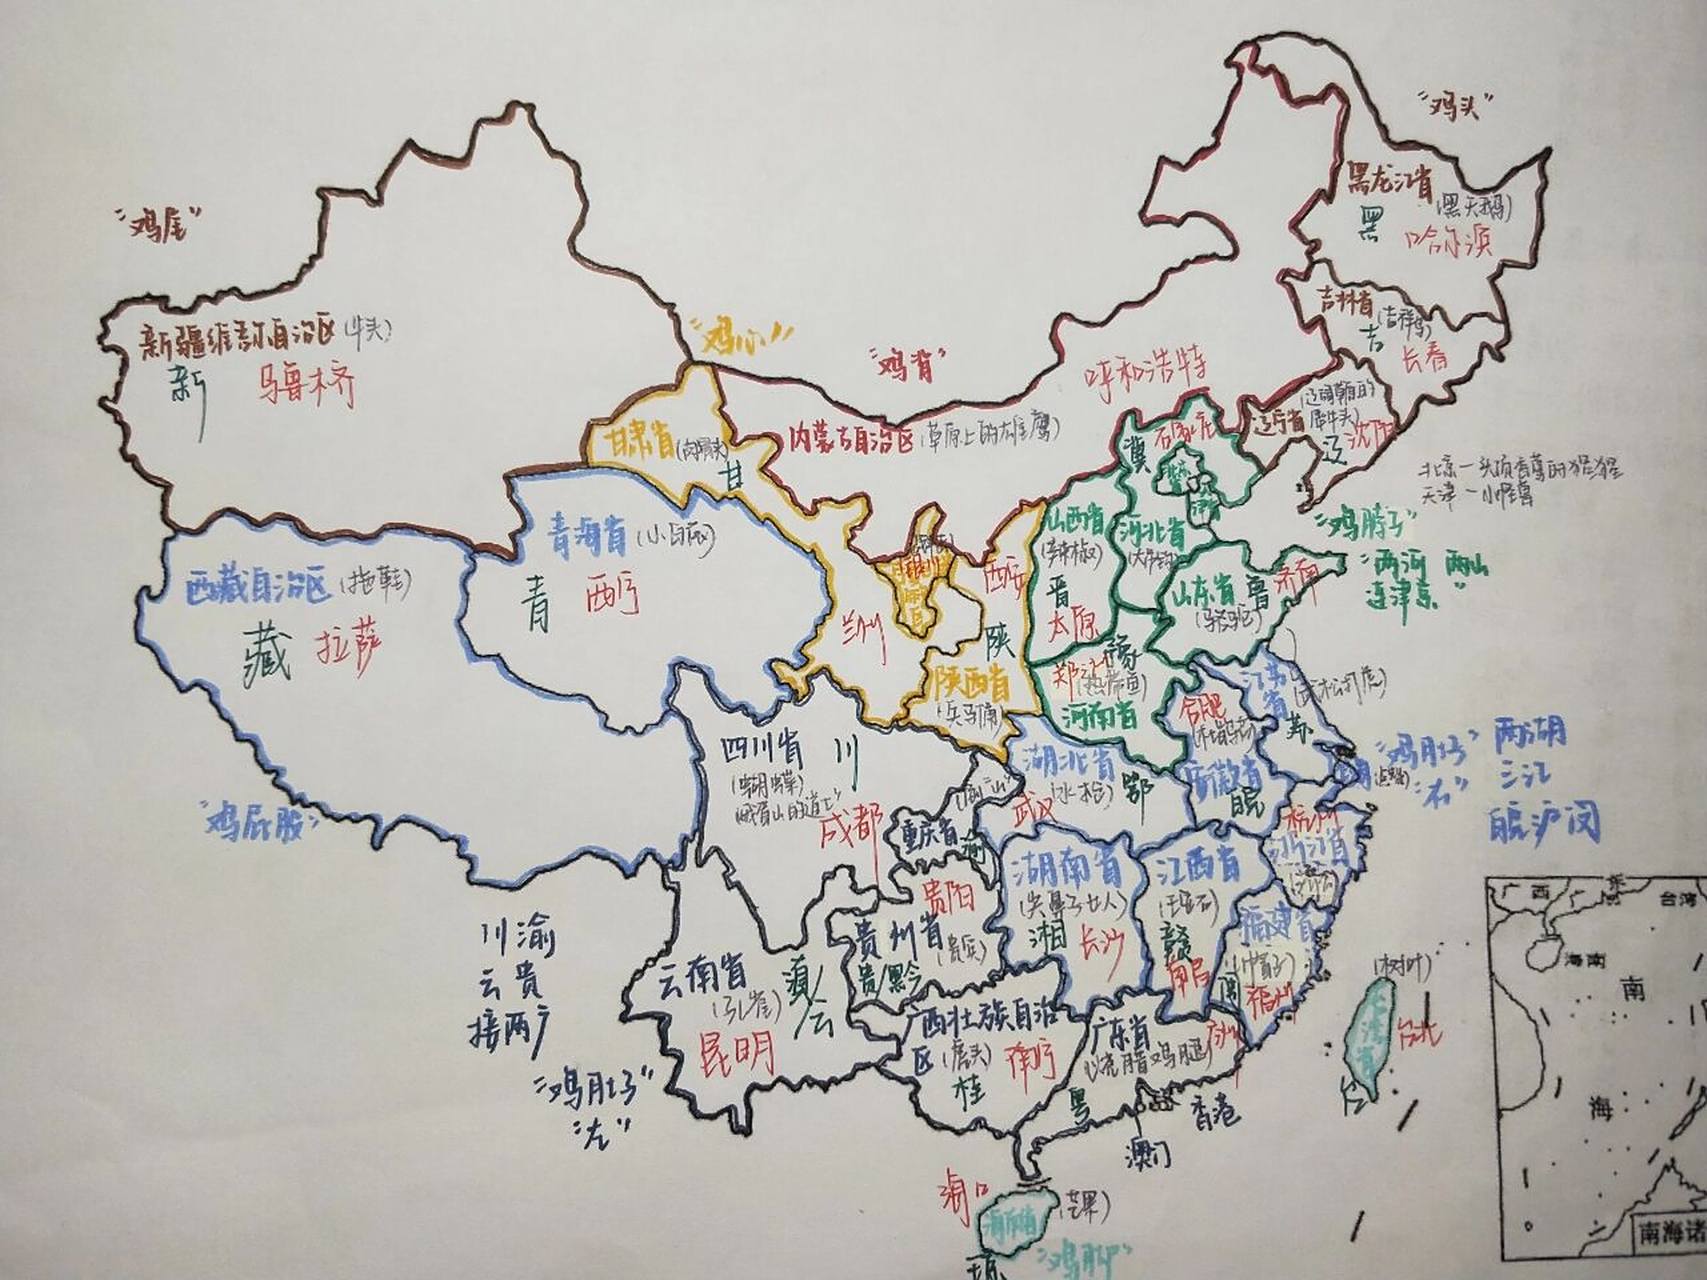 "鸡头"
黑龙江省
(黑天鹅)
黑
哈尔滨
"鸡尾"
新疆维吾尔自治区(牛头)
新
乌鲁木齐
"鸡心"
"鸡背"
呼和浩特
吉林省
吉
长春
甘肃省
甘
内蒙古自治区(草原上的大雄鹰)
石家庄
冀
辽宁省
辽
沈阳
北京一头顶
天津一小
"鸡脖子"
"两河 两山
连津京"
青海省
青
西宁
西藏自治区(拖鞋)
藏
拉萨
银川
西安
兰州
陕
陕西省
(兵马俑)
山西省
晋
太原
河北省
山东省
鲁
济南
豫
郑州
(热带鱼)
河南省
合肥
江苏省
苏
(武松打虎)
四川省
川
(蝴蝶)
(峨眉山的道士)
成都
湖北省
(水枪)
鄂
武汉
安徽省
皖
杭州
浙江省
"鸡肚子"
"右"
两湖
三江
皖沪闽
"鸡屁股"
重庆省
渝
湖南省
(尖鼻子女人)
湘
长沙
江西省
赣
南昌
福建省
闽
福州
贵阳
贵州省
贵/黔
云南省
(孔雀)
滇/云
昆明
川渝
云贵
接两广
"鸡肚子"
"左"
广西壮族自治区
(鹰头)
桂
南宁
广东省
粤
广州
香港
澳门
(树叶)
台湾省
台北
台
海口
海南省
(芒果)
琼
"鸡脚"
广西
广东
台湾
海南
南
海
南海诸